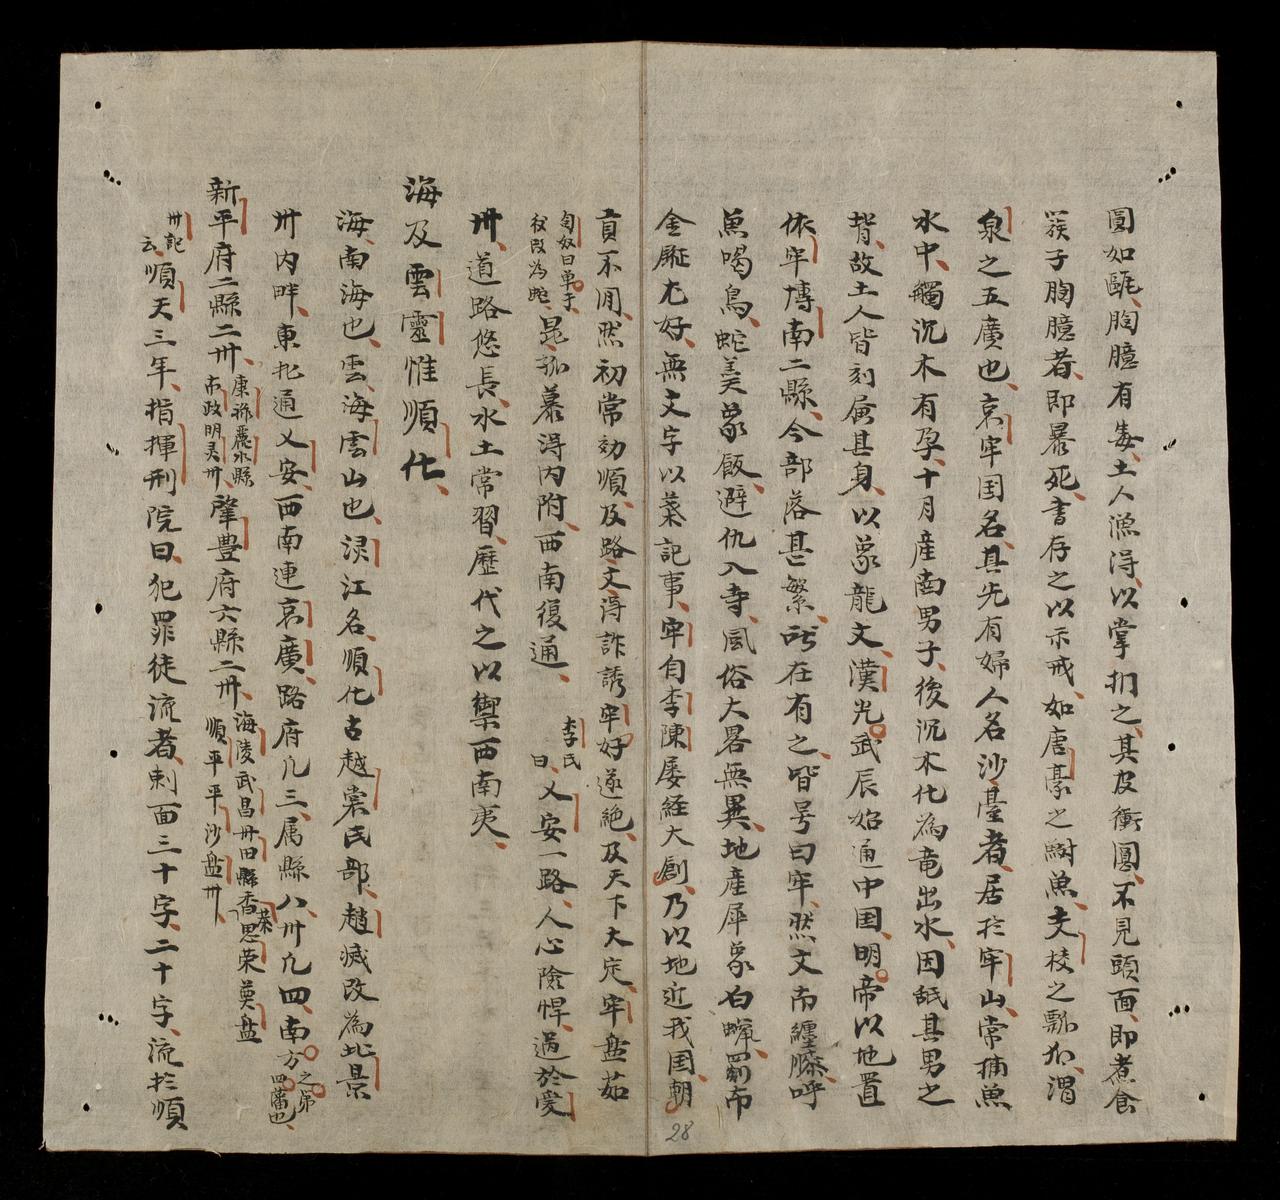 圓如甌、胸臆有毒、土人漁淂、以掌捫之、其皮衝圓、不見頭面、即煮食
簇子胸臆者、即暴死、書存之以示戒、如唐豪之䱸魚、夫校之瓢水、渭
泉之五廣也、哀牢国名、其先有婦人名沙臺者、居於牢山、常捕魚
水中、觸沉木有孕、十月産男子、後沉木化為竜出水、因舐其男之
背、故土人皆刻畫其身、以象龍文、漢光武辰始通中国、明帝以地置
依牢博南二縣、今部落甚繁、所在有之、皆号曰牢、然文南纏膝、呼
魚喝鳥、蛇羙象飯、避仇入寺、風俗大畧無異、地産犀象白蝋罽布
金𨫼尤好、無文字以葉記事、牢自李陳屡経大創、乃以地近我国朝
貢不闲、然初常効順、及路文淂詐誘牢好、遂絶、及天下大定、牢盘茹
匈奴曰单于、後改為蛇、昆孤慕淂内附、西南復通、李氏曰、乂安一路、人心險悍、過於愛
卅、道路悠長、水土常習、歷代之以禦西南夷、
海及雲靈惟順化、
海、南海也、雲、海雲山也、渌江名、順化古越裳氏部、趙滅改為北景
卅内畔、東北通乂安、西南連哀廣、路府凢三、属縣八、卅凢四、南方之第四藩也、
新平府二縣二卅、康祿麗水縣、布政明灵卅、肇豊府六縣二卅、海陵武昌卅田縣香茶思荣奠盘順平平沙盘卅、
卅記云、順天三年、指揮刑院曰、犯罪徒流者、刺面三十字、二十字、流於順
28